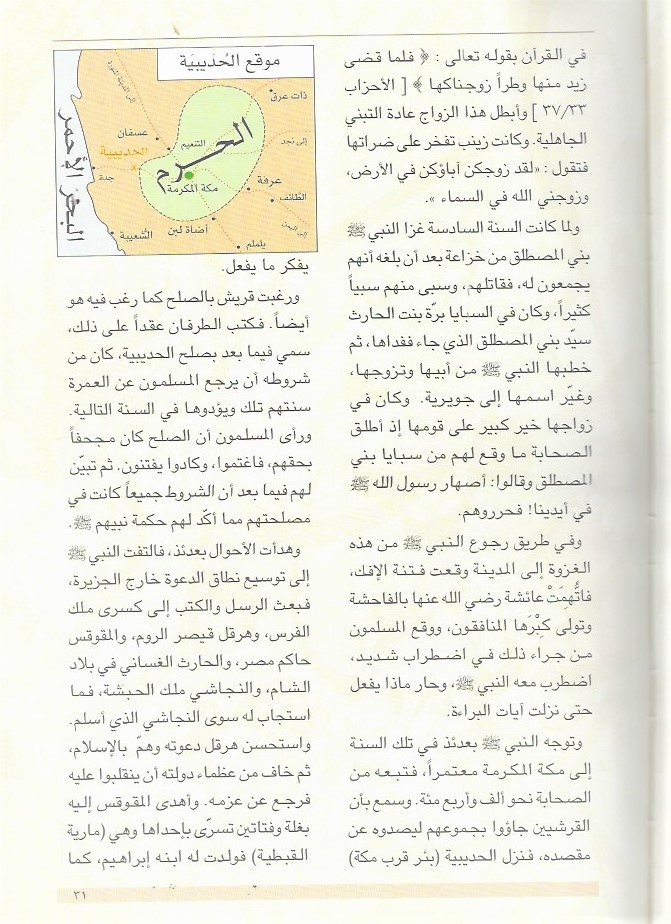 في القرآن بقوله تعالى : ﴿ فلما قضى
زيد منها وطراً زوجناكها ﴾ [ الأحزاب
٣٧/٣٣ ] وأبطل هذا الزواج عادة التبني
الجاهلية. وكانت زينب تفخر على ضراتها
فتقول : «لقد زوجكن آباؤكن في الأرض،
وزوجني الله في السماء ».
ولما كانت السنة السادسة غزا النبي ﷺ
بني المصطلق من خزاعة بعد أن بلغه أنهم
يجمعون له، فقاتلهم، وسبى منهم سبياً
كثيراً، وكان في السبايا برّة بنت الحارث
سيّد بني المصطلق الذي جاء ففداها، ثم
خطبها النبي ﷺ من أبيها وتزوجها،
وغيّر اسمها إلى جويرية. وكان في
زواجها خير كبير على قومها إذ أطلق
الصحابة ما وقع لهم من سبايا بني
المصطلق وقالوا: أصهار رسول الله ﷺ
في أيدينا! فحرروهم.
وفي طريق رجوع النبي ﷺ من هذه
الغزوة إلى المدينة وقعت فتنة الإفك،
فاتُّهِمَتْ عائشة رضي الله عنها بالفاحشة
وتولى كِبْرَها المنافقون، ووقع المسلمون
من جراء ذلك في اضطراب شديد،
اضطرب معه النبي ﷺ، وحار ماذا يفعل
حتى نزلت آيات البراءة.
وتوجه النبي ﷺ بعدئذ في تلك السنة
إلى مكة المكرمة معتمراً، فتبعه من
الصحابة نحو ألف وأربع مئة. وسمع بأن
القرشيين جاؤوا بجموعهم ليصدوه عن
مقصده، فنزل الحديبية (بئر قرب مكة)
موقع الحُدَيبيَة
ذات عرق
عسفان
التنعيم
إلى نجد
الحديبية
الحرم
جدة
مكة المكرمة
عرفة
الطائف
البحر الأحمر
الشُعيبة
أضاة لبن
إلى اليمن
يلملم
يفكر ما يفعل.
ورغبت قريش بالصلح كما رغب فيه هو
أيضاً. فكتب الطرفان عقداً على ذلك،
سمي فيما بعد بصلح الحديبية، كان من
شروطه أن يرجع المسلمون عن العمرة
سنتهم تلك ويؤدوها في السنة التالية.
ورأى المسلمون أن الصلح كان مجحفاً
بحقهم، فاغتموا، وكادوا يفتنون. ثم تبيّن
لهم فيما بعد أن الشروط جميعاً كانت في
مصلحتهم مما أكّد لهم حكمة نبيهم ﷺ.
وهدأت الأحوال بعدئذ، فالتفت النبي ﷺ
إلى توسيع نطاق الدعوة خارج الجزيرة،
فبعث الرسل والكتب إلى كسرى ملك
الفرس، وهرقل قيصر الروم، والمقوقس
حاكم مصر، والحارث الغساني في بلاد
الشام، والنجاشي ملك الحبشة، فما
استجاب له سوى النجاشي الذي أسلم.
واستحسن هرقل دعوته وهمّ بالإسلام،
ثم خاف من عظماء دولته أن ينقلبوا عليه
فرجع عن عزمه. وأهدى المقوقس إليه
بغلة وفتاتين تسرّى بإحداها وهي (مارية
القبطية) فولدت له ابنه إبراهيم، كما
٣١